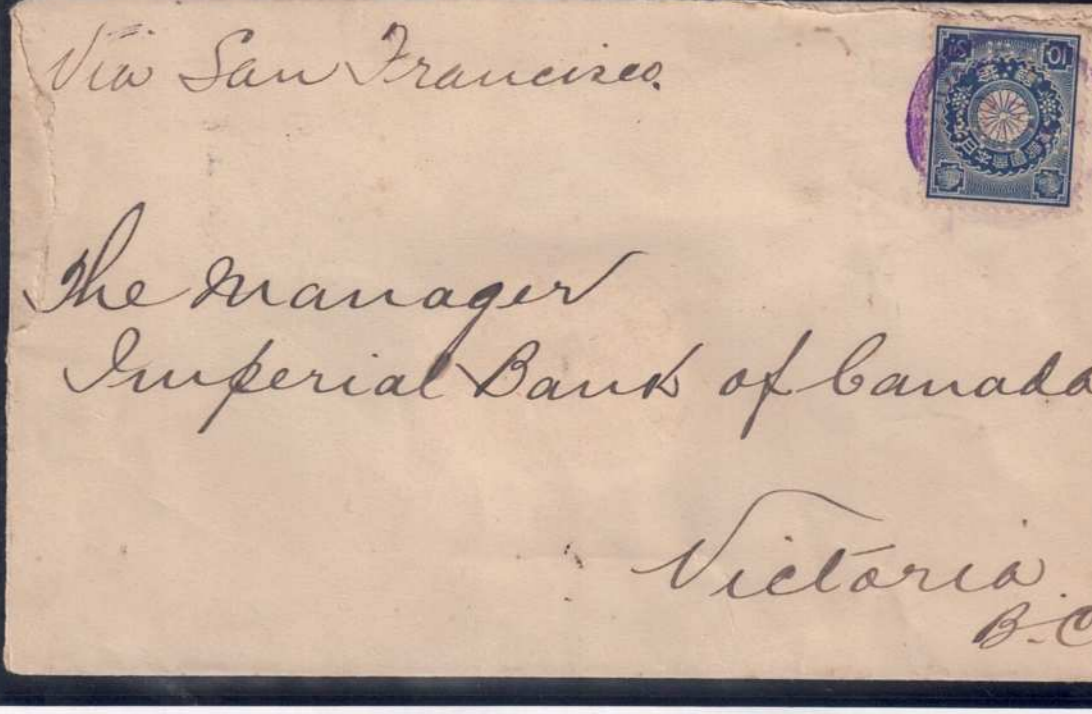 Via San Francisco.
10 Sn
The Manager
Imperial Bank of Canada
Victoria.
B.C